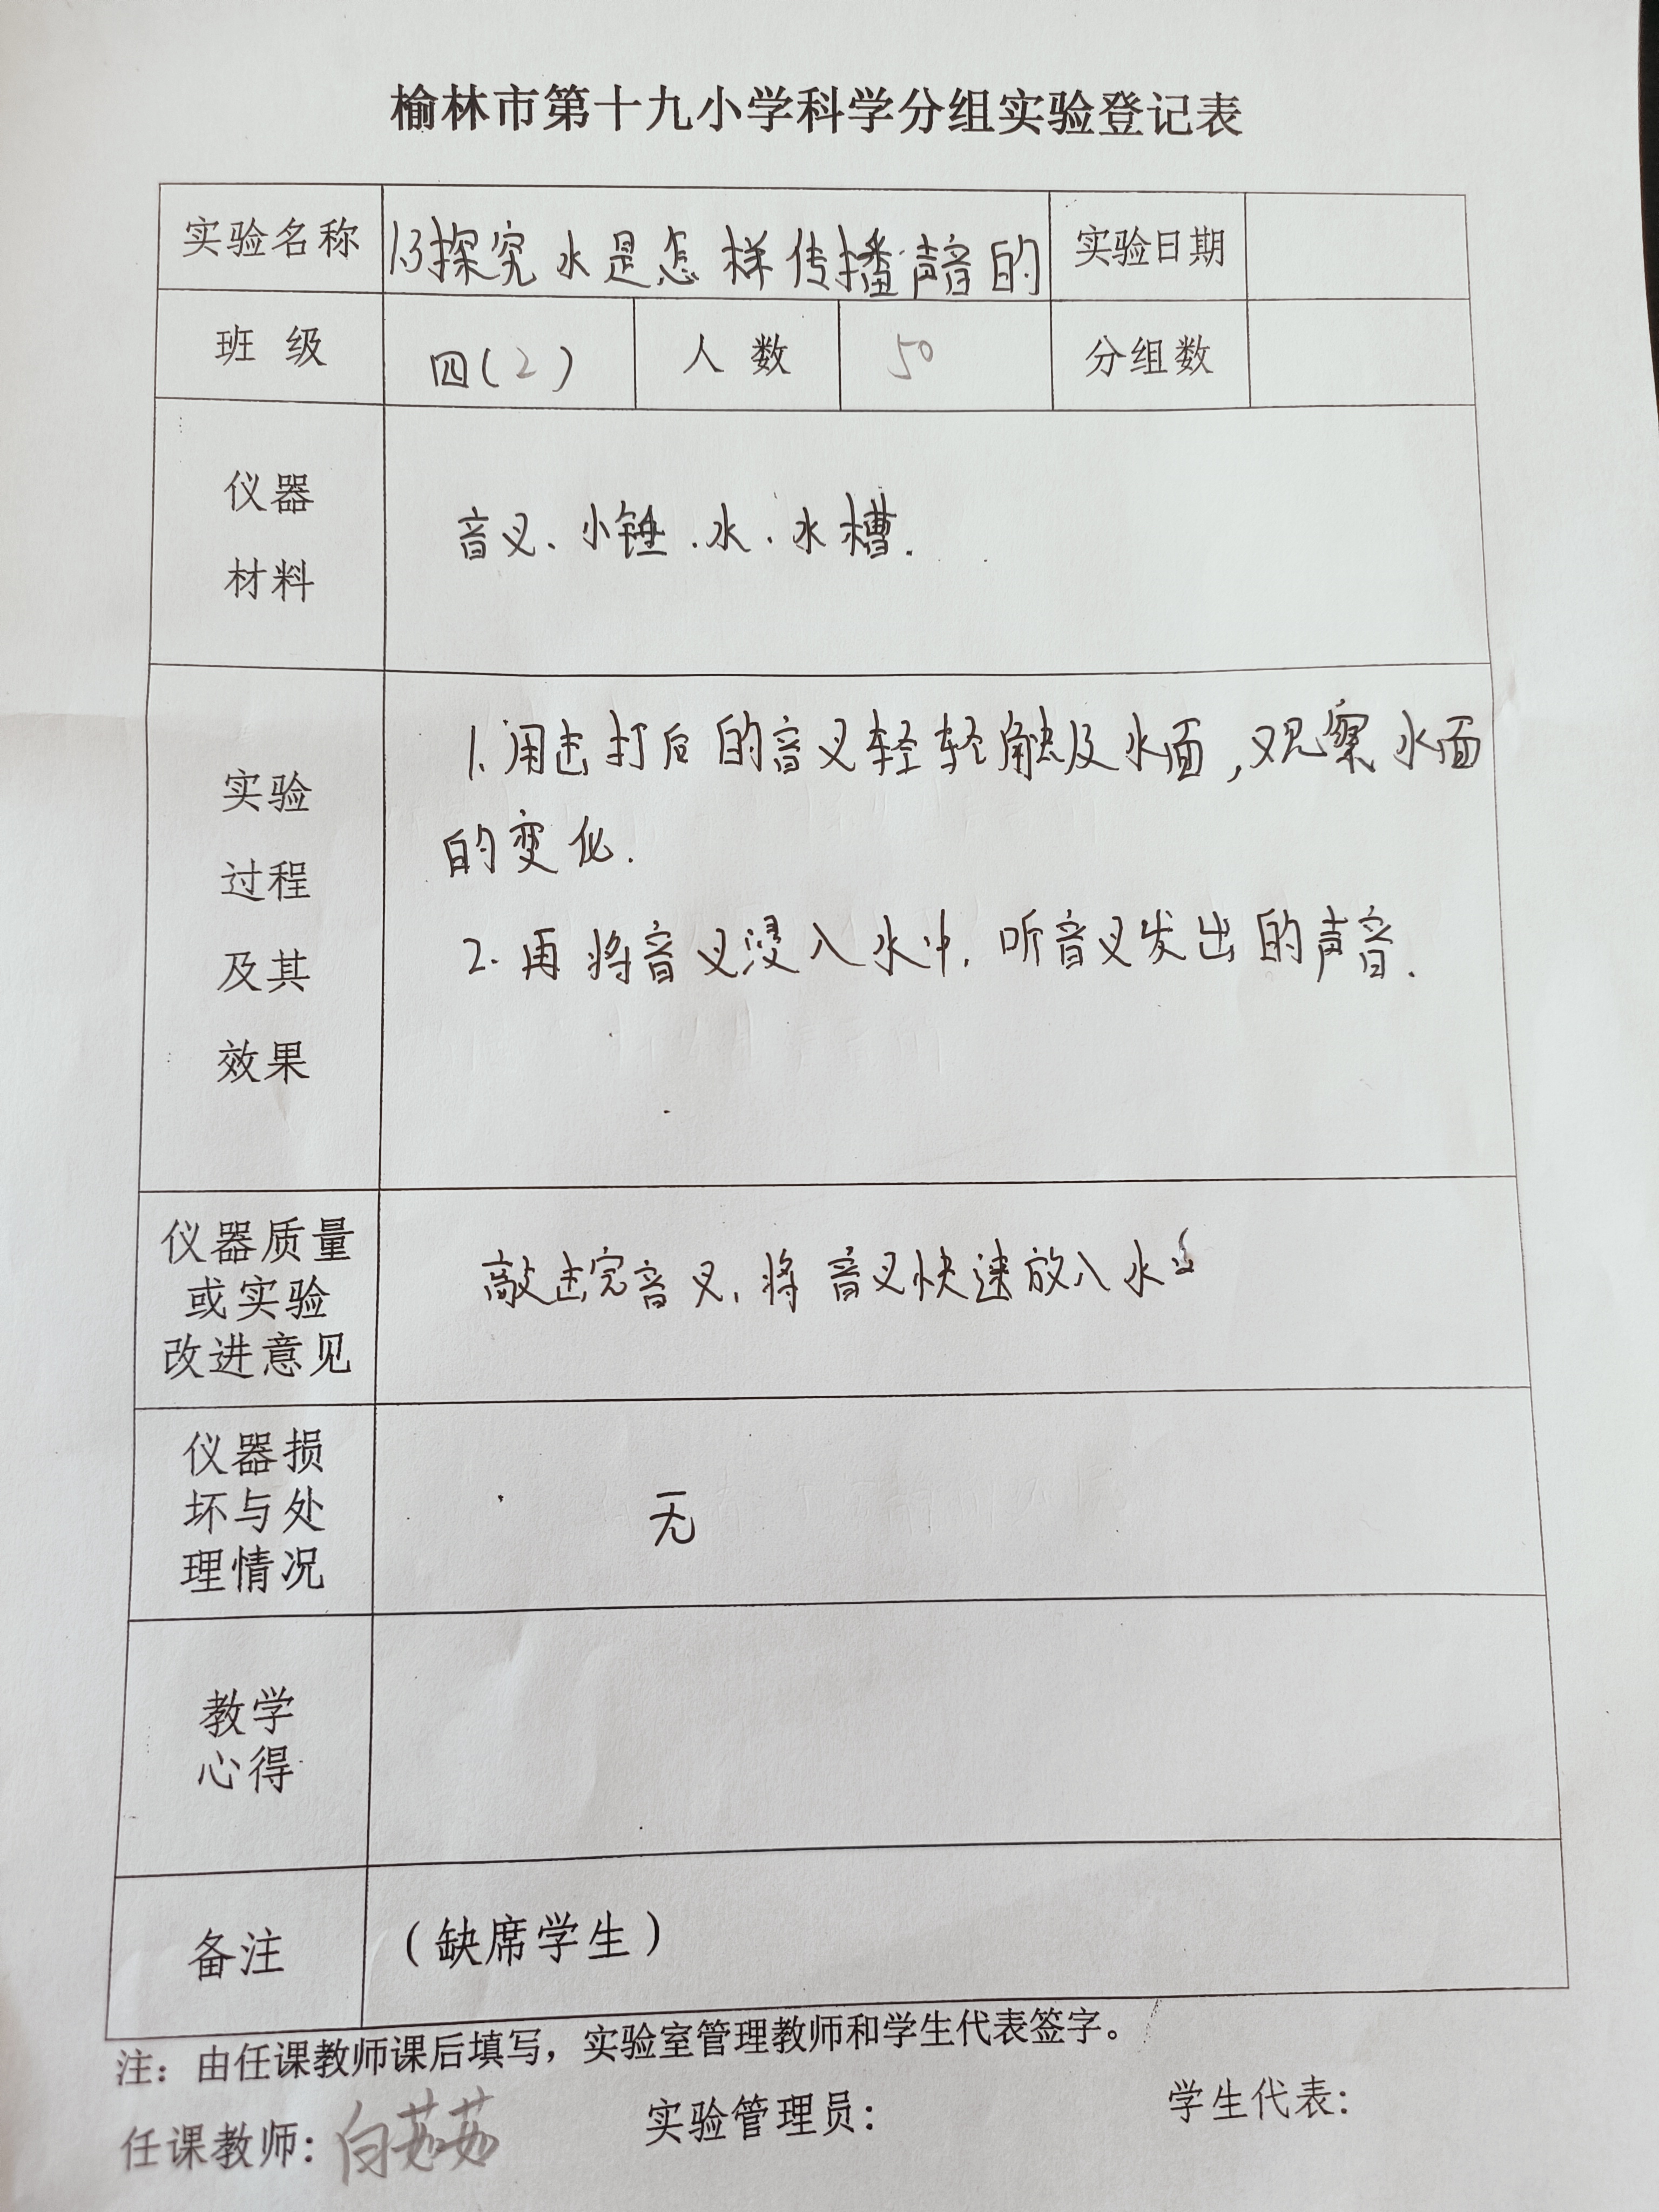 榆林市第十九小学科学分组实验登记表
实验名称 1.3探究水是怎样传播声音的 实验日期
班 级 四(2) 人 数 50 分组数
仪器
材料
音叉、小锤.水.水槽.
实验
过程
及其
效果
1.用击打后的音叉轻轻触及水面,观察水面
的变化.
2.再将音叉浸入水中.听音叉发出的声音.
仪器质量
或实验
改进意见
敲击完音叉、将音叉快速放入水
仪器损
坏与处
理情况
无
教学
心得
备注
(缺席学生)
注：由任课教师课后填写，实验室管理教师和学生代表签字。
任课教师: 白茹茹 实验管理员: 学生代表: